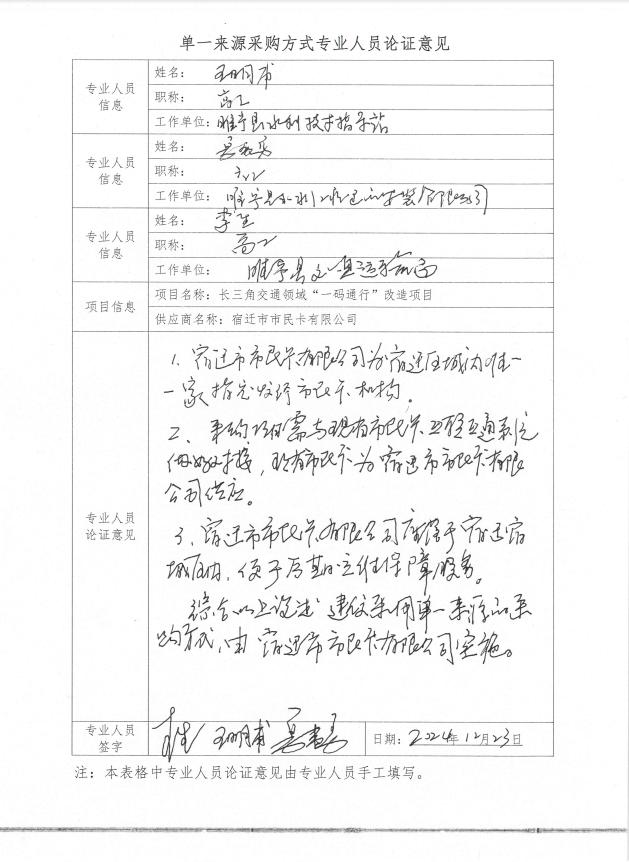 单一来源采购方式专业人员论证意见
专业人员
信息
姓名：王明甫
职称：高工
工作单位：睢宁县水利技术指导站
专业人员
信息
姓名：
职称：高工
工作单位：睢宁县
专业人员
信息
姓名：李生
职称：高工
工作单位：睢宁县
项目信息
项目名称：长三角交通领域“一码通行”改造项目
供应商名称：宿迁市市民卡有限公司
专业人员
论证意见
1、宿迁市市民卡有限公司为宿迁区域内唯一
一家指定发行市民卡机构。
2、采购项目需与现有市民卡互联互通系统
做好对接，现有市民卡为宿迁市市民卡有限
公司供应。
3、宿迁市市民卡有限公司座落于宿迁宿
城区内，便于后期运维保障服务。
综合以上说述 建议采用单一来源的采
购方式，由宿迁市市民卡有限公司实施。
专业人员
签字
李生 王明甫
日期：2024年12月23日
注：本表格中专业人员论证意见由专业人员手工填写。